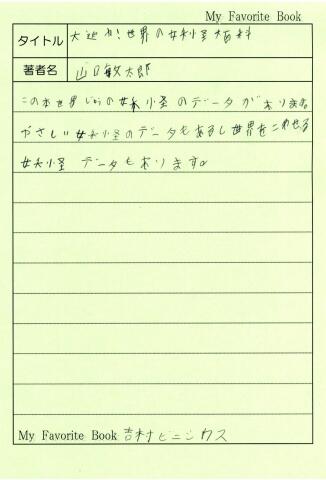 My Favorite Book
タイトル 大迫力!世界の妖怪大百科
著者名 山口敏太郎
この本世界じゅうの妖怪のデータがあります。
やさしい妖怪のデータもあるし世界をこわせる
妖怪データもあります。
My Favorite Book 吉村ビニシウス